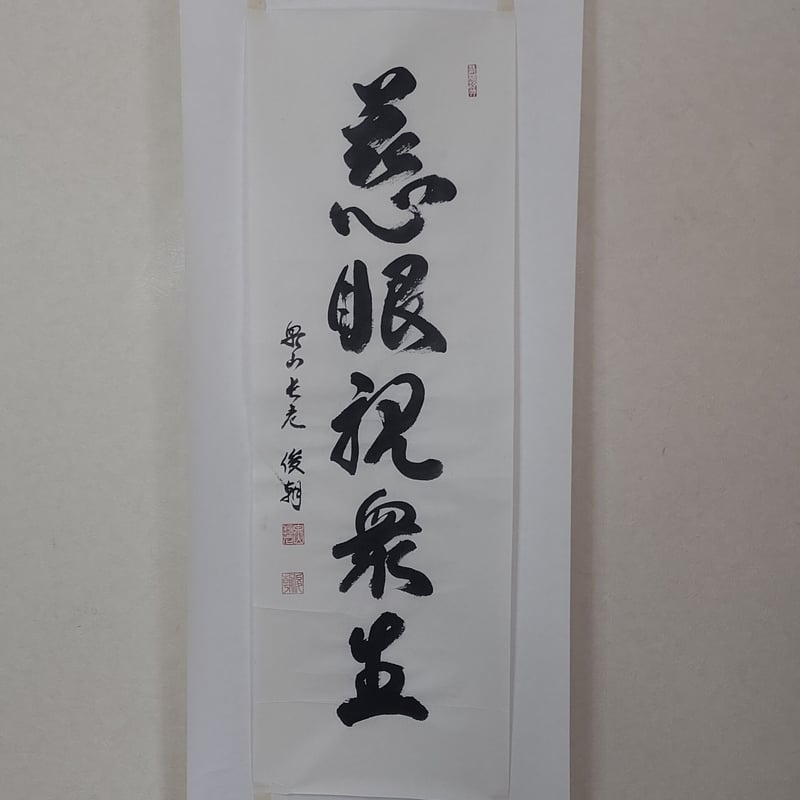 慈眼視衆生
山長老 俊朝